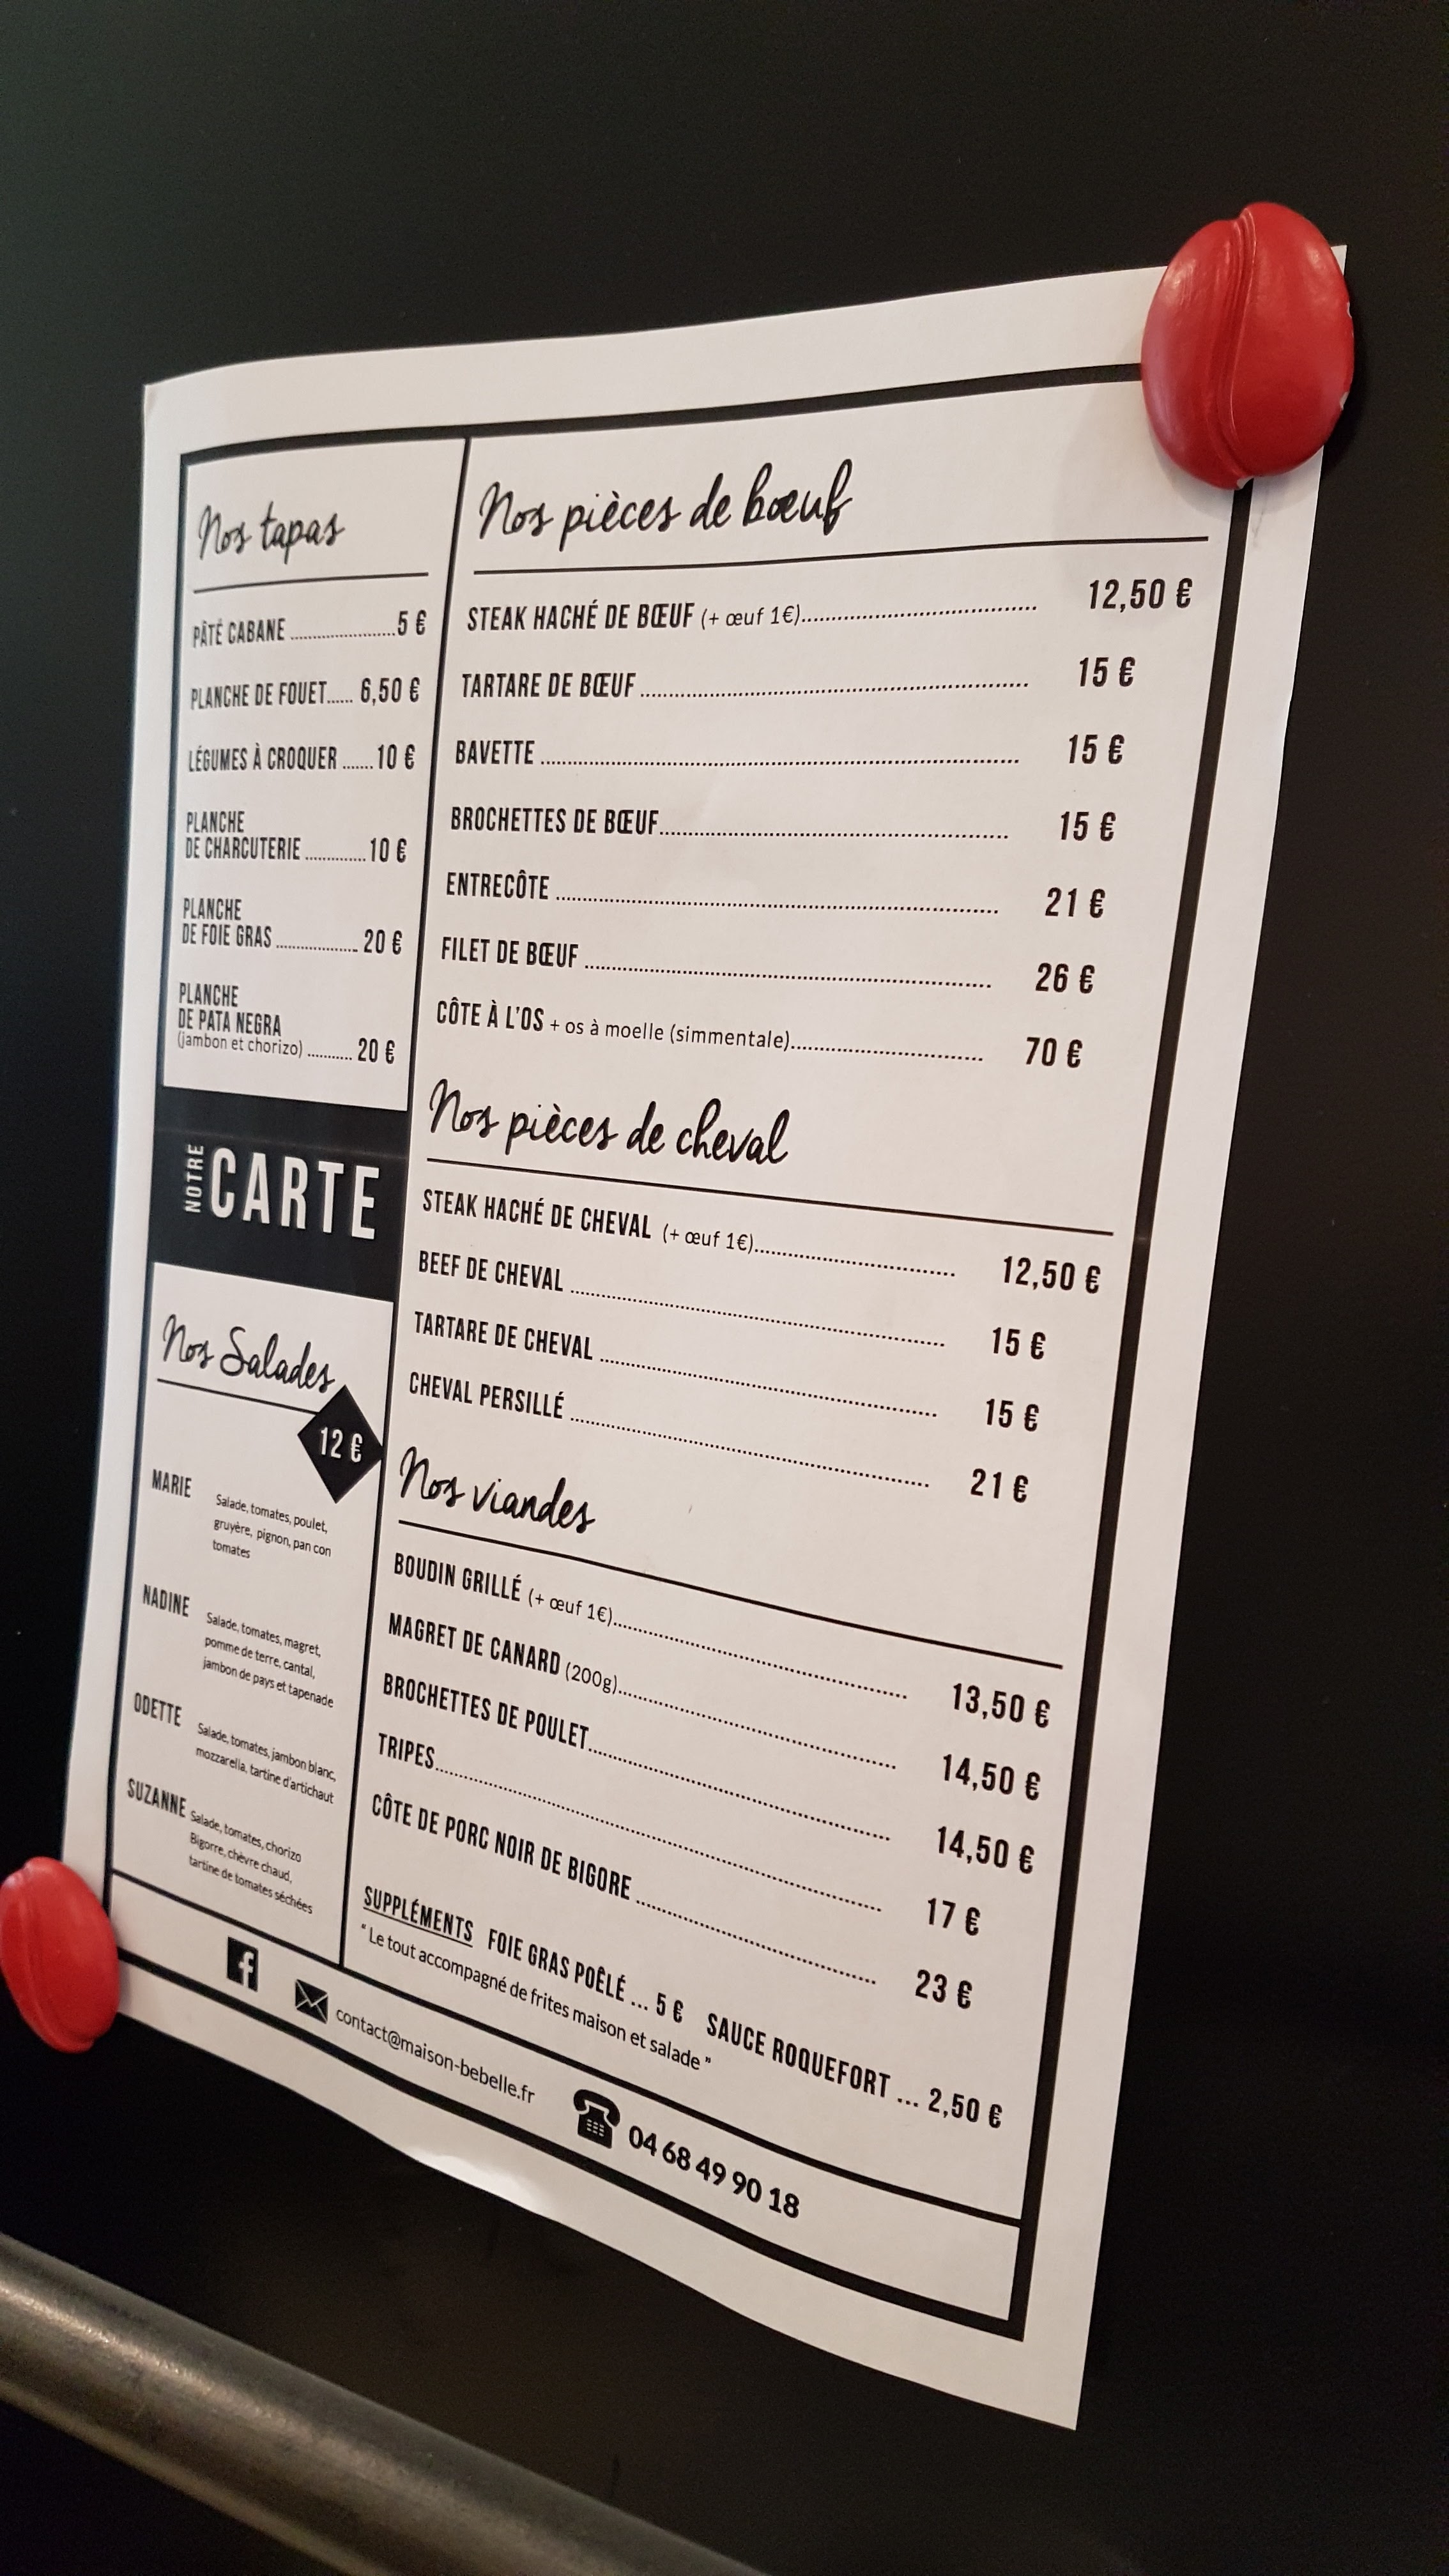 Nos tapas
PÂTÉ CABANE ........................ 5 €
PLANCHE DE FOUET...... 6,50 €
LÉGUMES À CROQUER ....... 10 €
PLANCHE
DE CHARCUTERIE .............. 10 €
PLANCHE
DE FOIE GRAS ................... 20 €
PLANCHE
DE PATA NEGRA
(jambon et chorizo) ........... 20 €
NOTRE CARTE
Nos Salades
12 €
MARIE
Salade, tomates, poulet,
gruyère, pignon, pan con
tomates
NADINE
Salade, tomates, magret,
pomme de terre, cantal,
jambon de pays et tapenade
ODETTE
Salade, tomates, jambon blanc,
mozzarella, tartine d'artichaut
SUZANNE
Salade, tomates, chorizo
Bigorre, chèvre chaud,
tartine de tomates séchées
Nos pièces de bœuf
STEAK HACHÉ DE BŒUF (+ œuf 1€)........................ 12,50 €
TARTARE DE BŒUF ........................ 15 €
BAVETTE ........................ 15 €
BROCHETTES DE BŒUF........................ 15 €
ENTRECÔTE ........................ 21 €
FILET DE BŒUF ........................ 26 €
CÔTE À L'OS + os à moelle (simmentale)........................ 70 €
Nos pièces de cheval
STEAK HACHÉ DE CHEVAL (+ œuf 1€)........................ 12,50 €
BEEF DE CHEVAL ........................ 15 €
TARTARE DE CHEVAL ........................ 15 €
CHEVAL PERSILLÉ ........................ 21 €
Nos viandes
BOUDIN GRILLÉ (+ œuf 1€)........................ 13,50 €
MAGRET DE CANARD (200g)........................ 14,50 €
BROCHETTES DE POULET........................ 14,50 €
TRIPES........................ 17 €
CÔTE DE PORC NOIR DE BIGORE ........................ 23 €
SUPPLÉMENTS FOIE GRAS POÊLÉ ... 5 € SAUCE ROQUEFORT ... 2,50 €
" Le tout accompagné de frites maison et salade "
f contact@maison-bebelle.fr 04 68 49 90 18